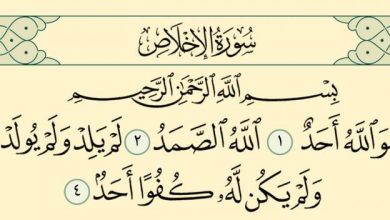 سُورَةُ الإِخْلَاصِ
بِسْمِ اللَّهِ الرَّحْمَٰنِ الرَّحِيمِ
هُوَ اللَّهُ أَحَدٌ ١ اللَّهُ الصَّمَدُ ٢ لَمْ يَلِدْ وَلَمْ يُولَدْ
وَلَمْ يَكُن لَّهُ كُفُوًا أَحَدٌ ٤